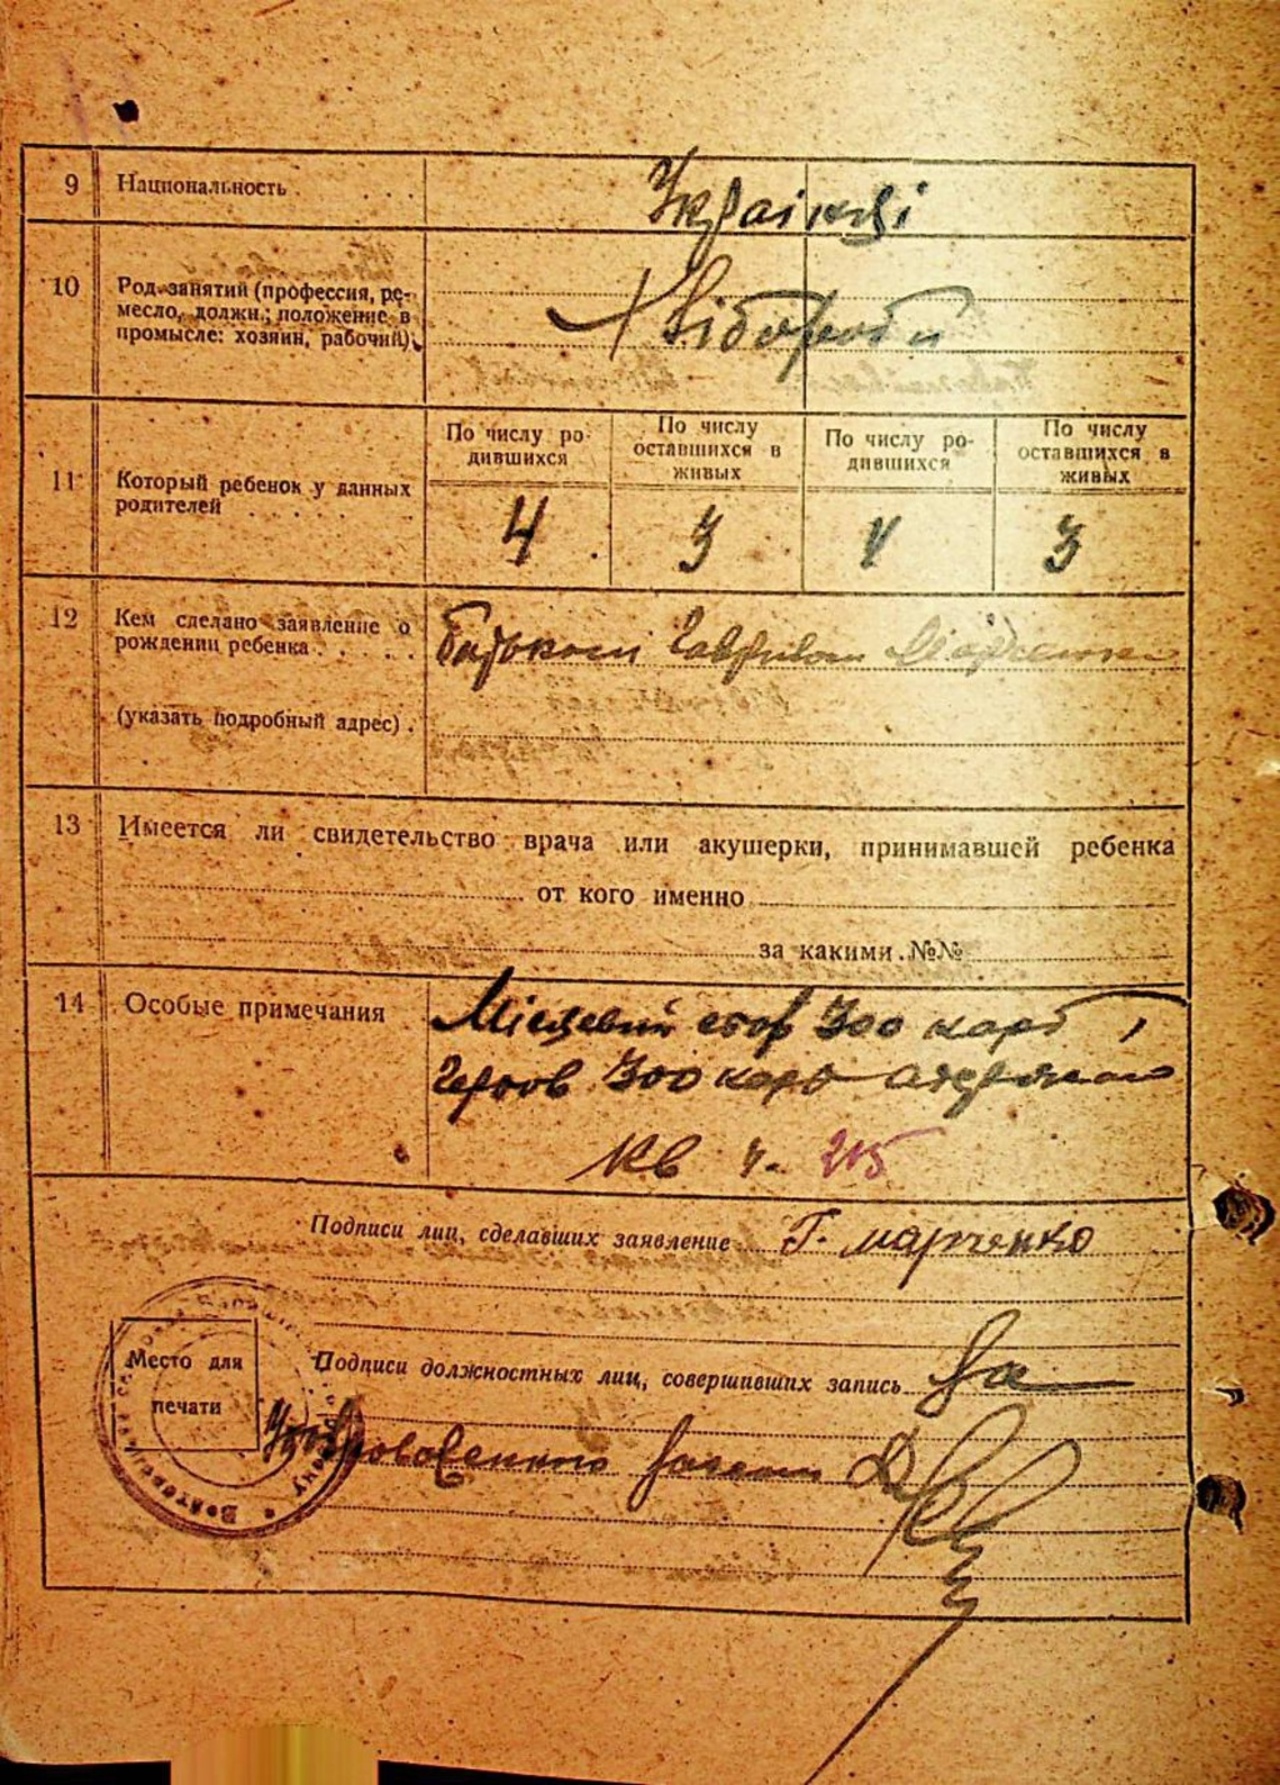 9 Национальность . . . .
Українці
10 Род занятий (профессия, ре-
месло, должн.; положение в
промысле: хозяин, рабочий).
Хлібороби
11 Который ребенок у данных
родителей . . . . . .
По числу ро-
дившихся
По числу
оставшихся в
живых
По числу ро-
дившихся
По числу
оставшихся в
живых
4 3 3
12 Кем сделано заявление о
рождении ребенка . . . . .
(указать подробный адрес) .
Батьком Гаврилом Марченком
13 Имеется ли свидетельство врача или акушерки, принимавшей ребенка
от кого именно
за какими №№
14 Особые примечания
Місцевий сбор 300 карб і
Гербов 300 карб
Кв ч. 215
Подписи лиц, сделавших заявление Г. Марченко
Место для
печати
Подписи должностных лиц, совершивших запись